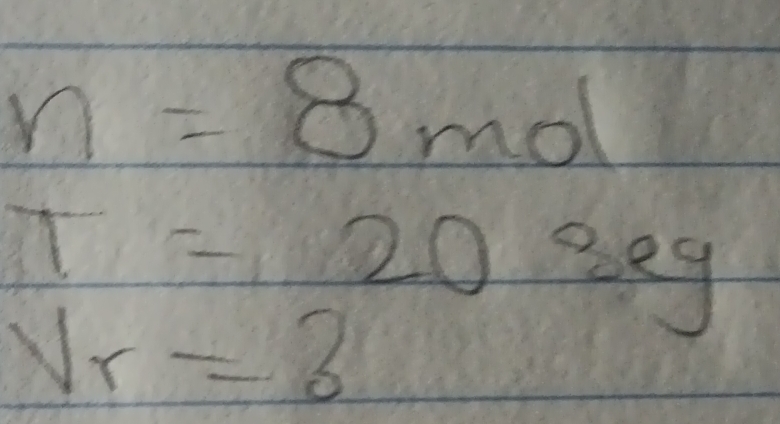 n = 8 mol
T = 20 seg
Vr = ?